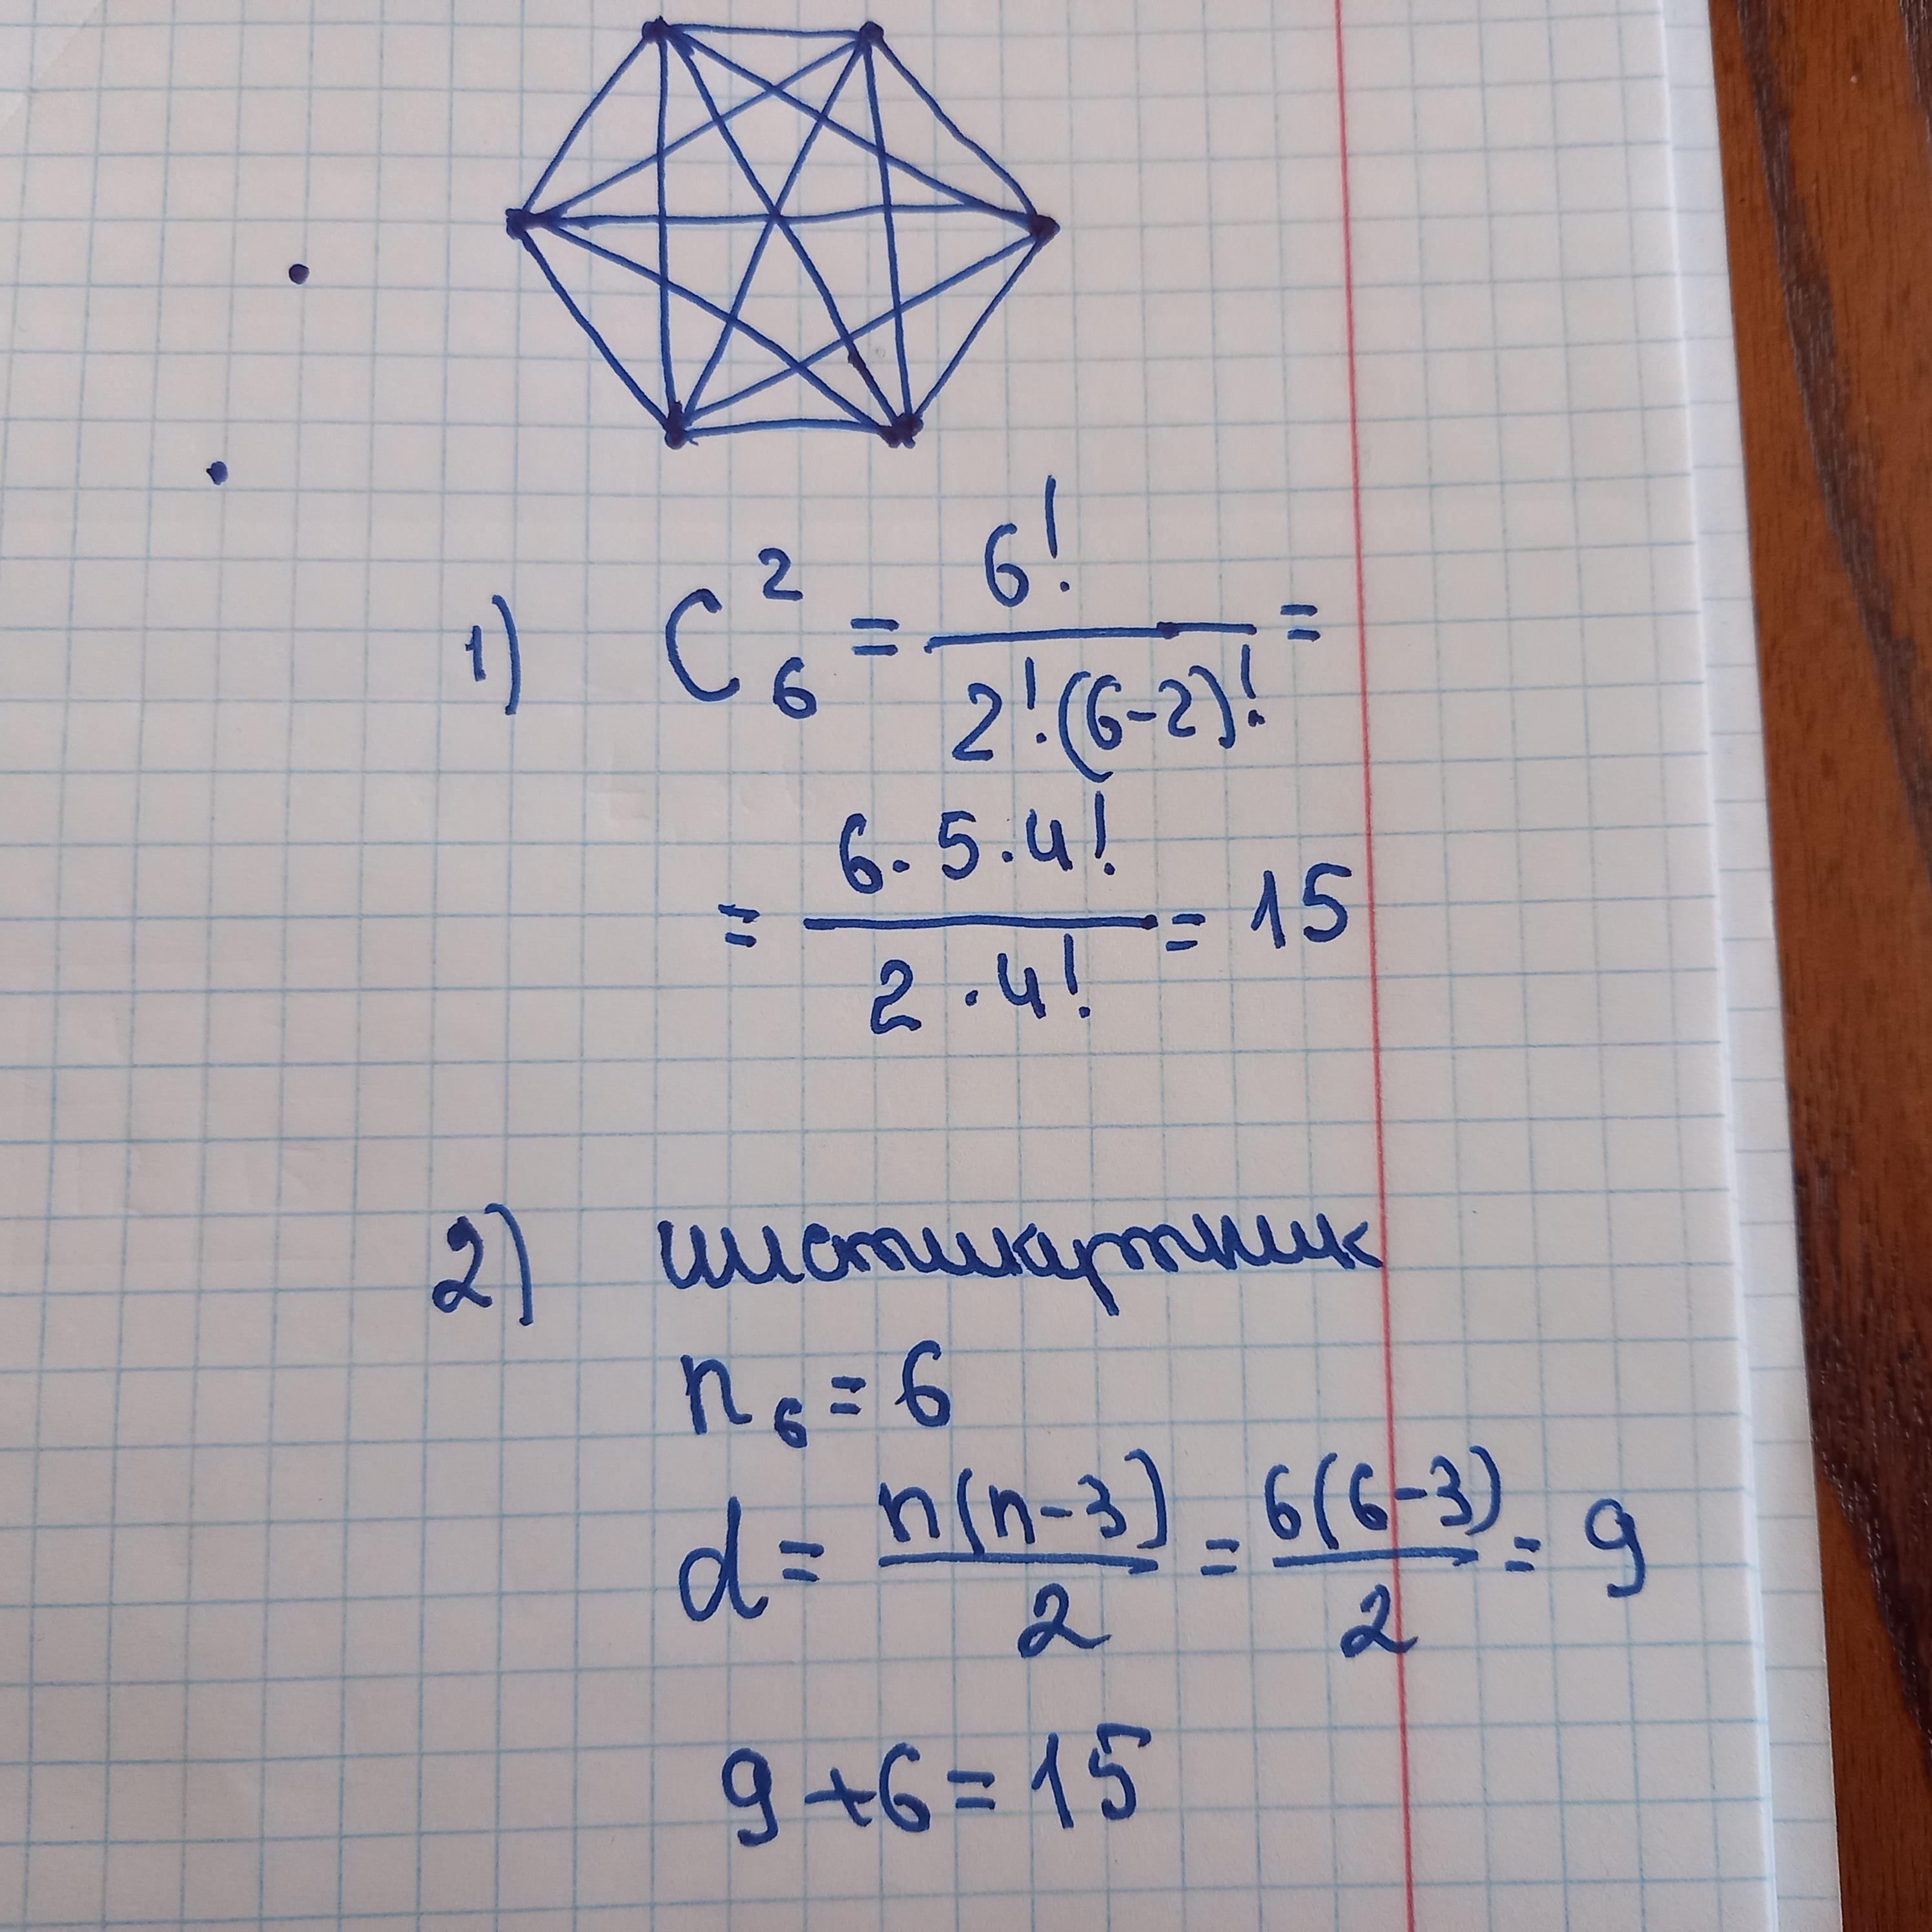 1) C²₆ = 6! / 2!(6-2)! =
= 6·5·4! / 2·4! = 15
2) шистикутник
n₆ = 6
d = n(n-3) / 2 = 6(6-3) / 2 = 9
9+6=15